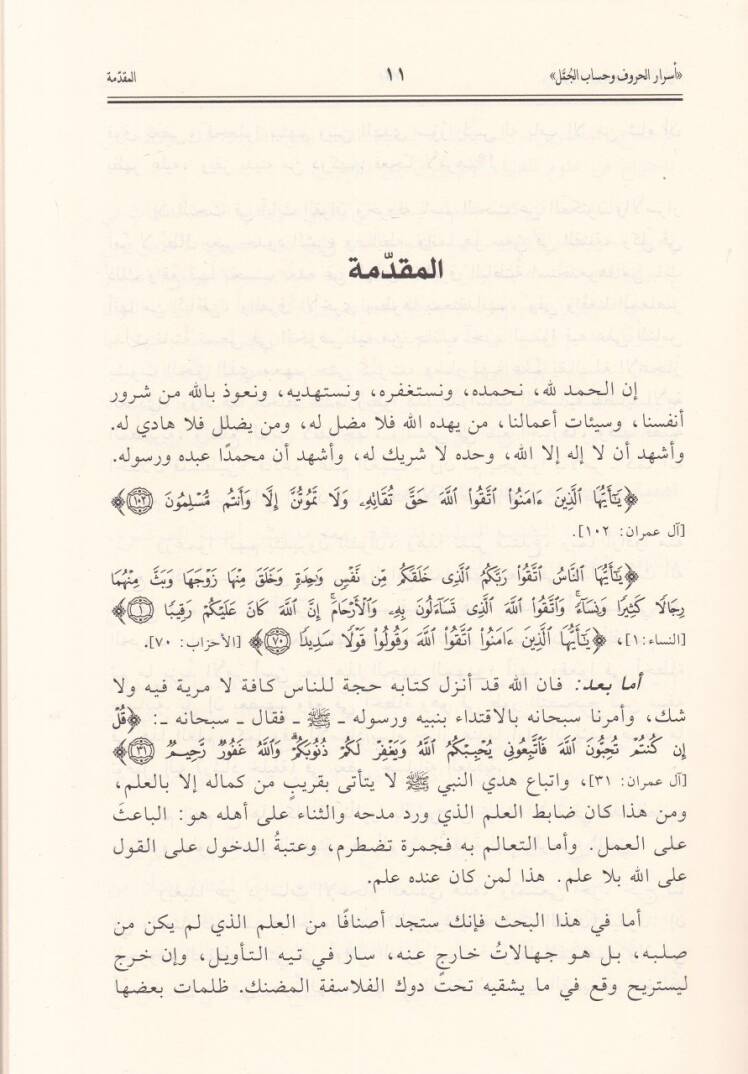 «أسرار الحروف وحساب الجُمَّل» ١١ المقدّمة
المقدّمة
إن الحمد لله، نحمده، ونستغفره، ونستهديه، ونعوذ بالله من شرور
أنفسنا، وسيئات أعمالنا، من يهده الله فلا مضل له، ومن يضلل فلا هادي له.
وأشهد أن لا إله إلا الله، وحده لا شريك له، وأشهد أن محمدًا عبده ورسوله.
﴿يَٰٓأَيُّهَا ٱلَّذِينَ ءَامَنُوا۟ ٱتَّقُوا۟ ٱللَّهَ حَقَّ تُقَاتِهِۦ وَلَا تَمُوتُنَّ إِلَّا وَأَنتُم مُّسْلِمُونَ ١٠٢﴾
[آل عمران: ١٠٢].
﴿يَٰٓأَيُّهَا ٱلنَّاسُ ٱتَّقُوا۟ رَبَّكُمُ ٱلَّذِى خَلَقَكُم مِّن نَّفْسٍ وَٰحِدَةٍ وَخَلَقَ مِنْهَا زَوْجَهَا وَبَثَّ مِنْهُمَا
رِجَالًا كَثِيرًا وَنِسَآءً ۚ وَٱتَّقُوا۟ ٱللَّهَ ٱلَّذِى تَسَآءَلُونَ بِهِۦ وَٱلْأَرْحَامَ ۚ إِنَّ ٱللَّهَ كَانَ عَلَيْكُمْ رَقِيبًا ١﴾
[النساء: ١]، ﴿يَٰٓأَيُّهَا ٱلَّذِينَ ءَامَنُوا۟ ٱتَّقُوا۟ ٱللَّهَ وَقُولُوا۟ قَوْلًا سَدِيدًا ٧٠﴾ [الأحزاب: ٧٠].
أما بعد: فان الله قد أنزل كتابه حجة للناس كافة لا مرية فيه ولا
شك، وأمرنا سبحانه بالاقتداء بنبيه ورسوله ـ ﷺ ـ فقال ـ سبحانه ـ: ﴿قُلْ
إِن كُنتُمْ تُحِبُّونَ ٱللَّهَ فَٱتَّبِعُونِى يُحْبِبْكُمُ ٱللَّهُ وَيَغْفِرْ لَكُمْ ذُنُوبَكُمْ ۗ وَٱللَّهُ غَفُورٌ رَّحِيمٌ ٣١﴾
[آل عمران: ٣١]، واتباع هدي النبي ﷺ لا يتأتى بقريبٍ من كماله إلا بالعلم،
ومن هذا كان ضابط العلم الذي ورد مدحه والثناء على أهله هو: الباعثَ
على العمل. وأما التعالم به فجمرة تضطرم، وعتبةُ الدخول على القول
على الله بلا علم. هذا لمن كان عنده علم.
أما في هذا البحث فإنك ستجد أصنافًا من العلم الذي لم يكن من
صلبه، بل هو جهالاتُ خارجٍ عنه، سار في تيه التأويل، وإن خرج
ليستريح وقع في ما يشقيه تحت دوك الفلاسفة المضنك. ظلمات بعضها